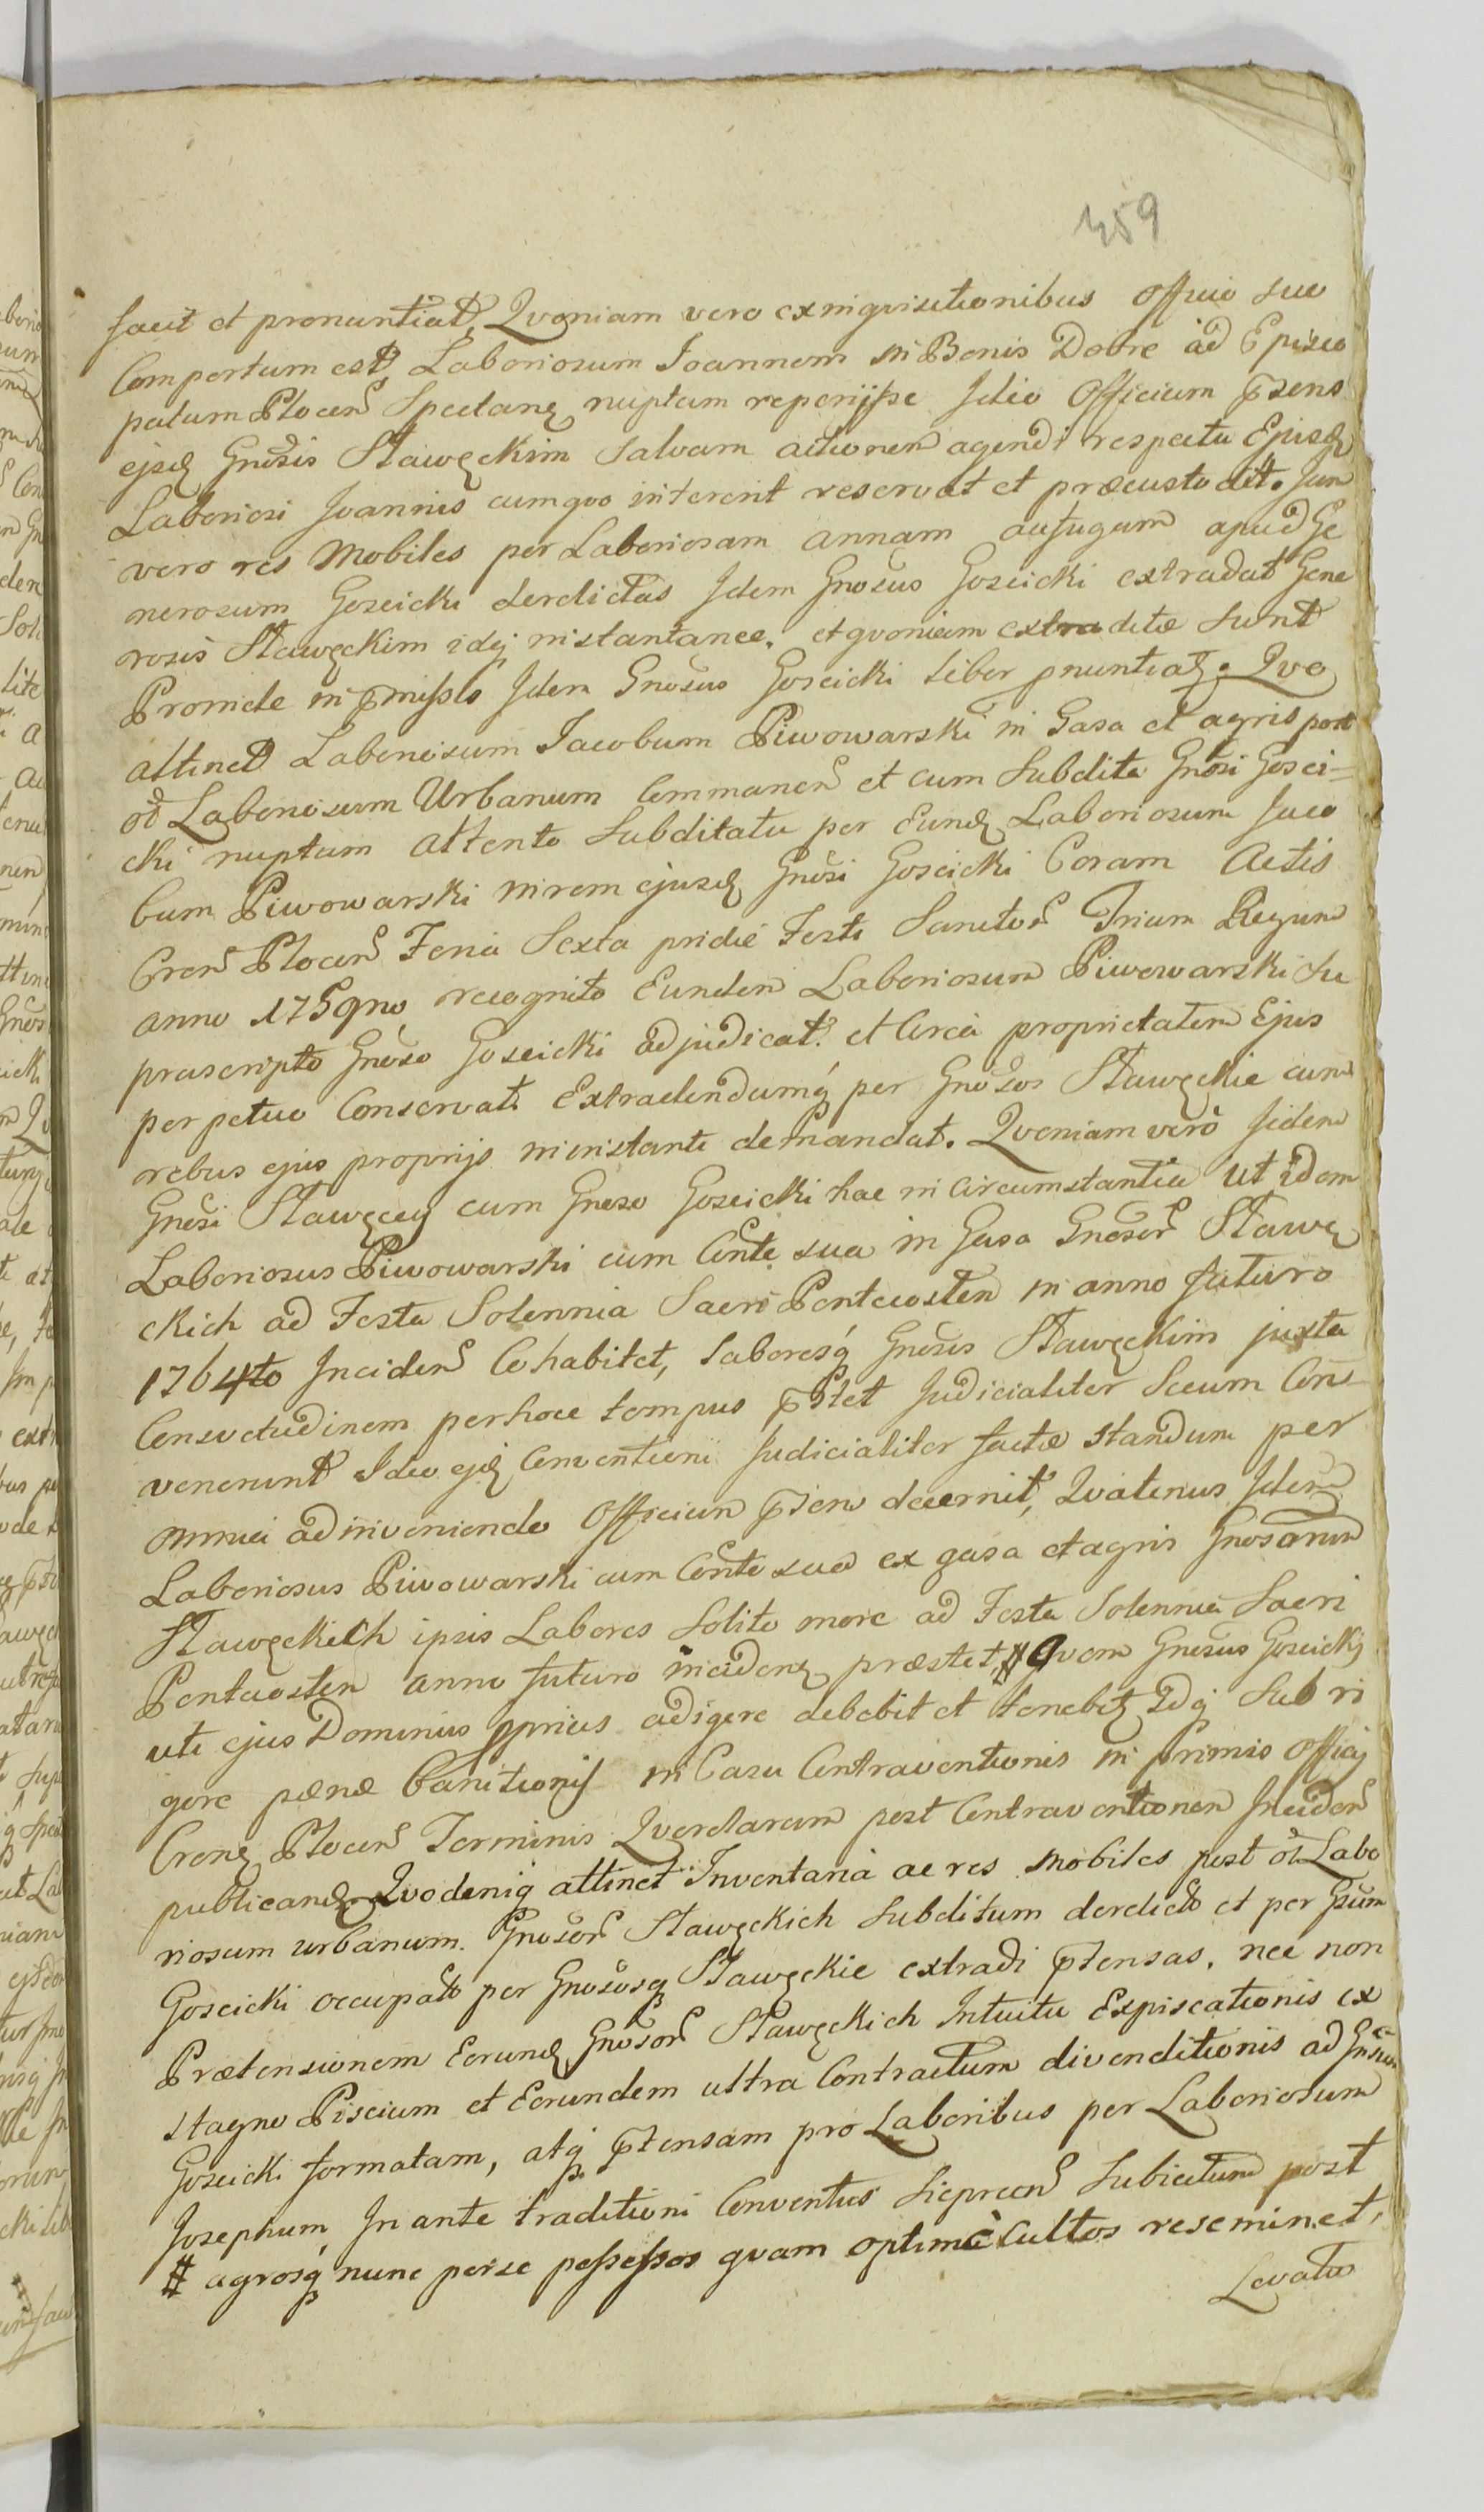 359
facit et pronuntiat, Qvoniam vero ex inqvisitionibus Officio suo
Compertum est Laboriosum Joannem in Bonis Dobre ad Episco
patum Plocen Spectanę nuptam reperijsse Ideo Officium pSens
ejsdę Gnosis Stawęckim Salvam actionem agendi respectu Ejusdę
Laboriosi Joannis cum qvo intererit reservat et præcustodit. Jam
vero res Mobiles per Laboriosam annam aufugam apud Ge
nerosum Goscicki derelictas Idem Gnosus Goscicki extradat Gene
rosis Stawęckim idq instantanee, et qvoniam extraditæ Sunt
Proinde in pmissis Idem Gnosus Goscicki liber pnuntiatę. Qvo
attinet Laboriosum Jacobum Piwowarski in Gasa et agris post
ol Laboriosum Urbanum Commanen et cum Subdita Gnosi Gosci=
cki nuptum attento Subditatu per Eundę Laboriosum Jaco
bum Piwowarski in rem ejusdę Gnosi Goscicki Coram Actis
Cren Plocen Feria Sexta pridie Festi Sanctor Trium Regum
anno 1759no recognito Eundem Laboriosum Piwowarski Su
prascripto Gnoso Goscicki adjudicat. et Circa proprietatem Ejus
perpetuo Conservat Extradendumq per Gnosos Stawęckie cum
rebus ejus proprijs in instanti demandat. Qvoniam vero Iidem
Gnosi Stawęccy cum Gnoso Goscicki hac in Circumstantia ut idem
Laboriosus Piwowarski cum Conte sua in Gasa Gnosor Stawę
ckich ad Festa Solennia Sacri Pentecosten in anno futuro
1764to Inciden Cohabitet, Laboresq Gnosis Stawęckim juxta
Consvetudinem per hoce tempus pStet Judicialiter Secum Con
venerunt Ideo ejdę Conventioni Judicialiter factæ Standum per
omnia adinveniendo Officium pSens decernit, Qvatenus Idem
Laboriosus Piwowarski cum Conte sua ex gasa et agris Gnosorum
Stawęckich ipsis Labores Solito more ad Festa Solennia Sacri
Pentecosten anno futuro incidenę præstet, # Qvem Gnosus Goscicki
uti ejus Dominus pprius adigere debebit et tenebitę Idq Sub ri
gore pænæ banitionis in Casu Contraventionis in primis Officij
Crenę Plocen Terminis Qverelarum post Contraventionem Inciden
publicandę. Qvo deniq attinet Inventaria ac res mobiles post ol Labo
riosum urbanum Gnosor Stawęckich Subditum derelicto et per Gsum
Goscicki occupato per Gnososq Stawęckie extradi ptensas, nec non
Prætensionem Eorundę Gnosor Stawęckich Intuitu Expiscationis ex
Stagno Piscium et Eorundem ultra Contractum divenditionis ad Gnsum
Goscicki formatam, atq ptensam pro Laboribus per Laboriosum
Josephum, In ante traditioni Conventus Siepreen Subiectum post
# agrosq nunc per se possessos qvam optimè Cultos reseminet,
Levata